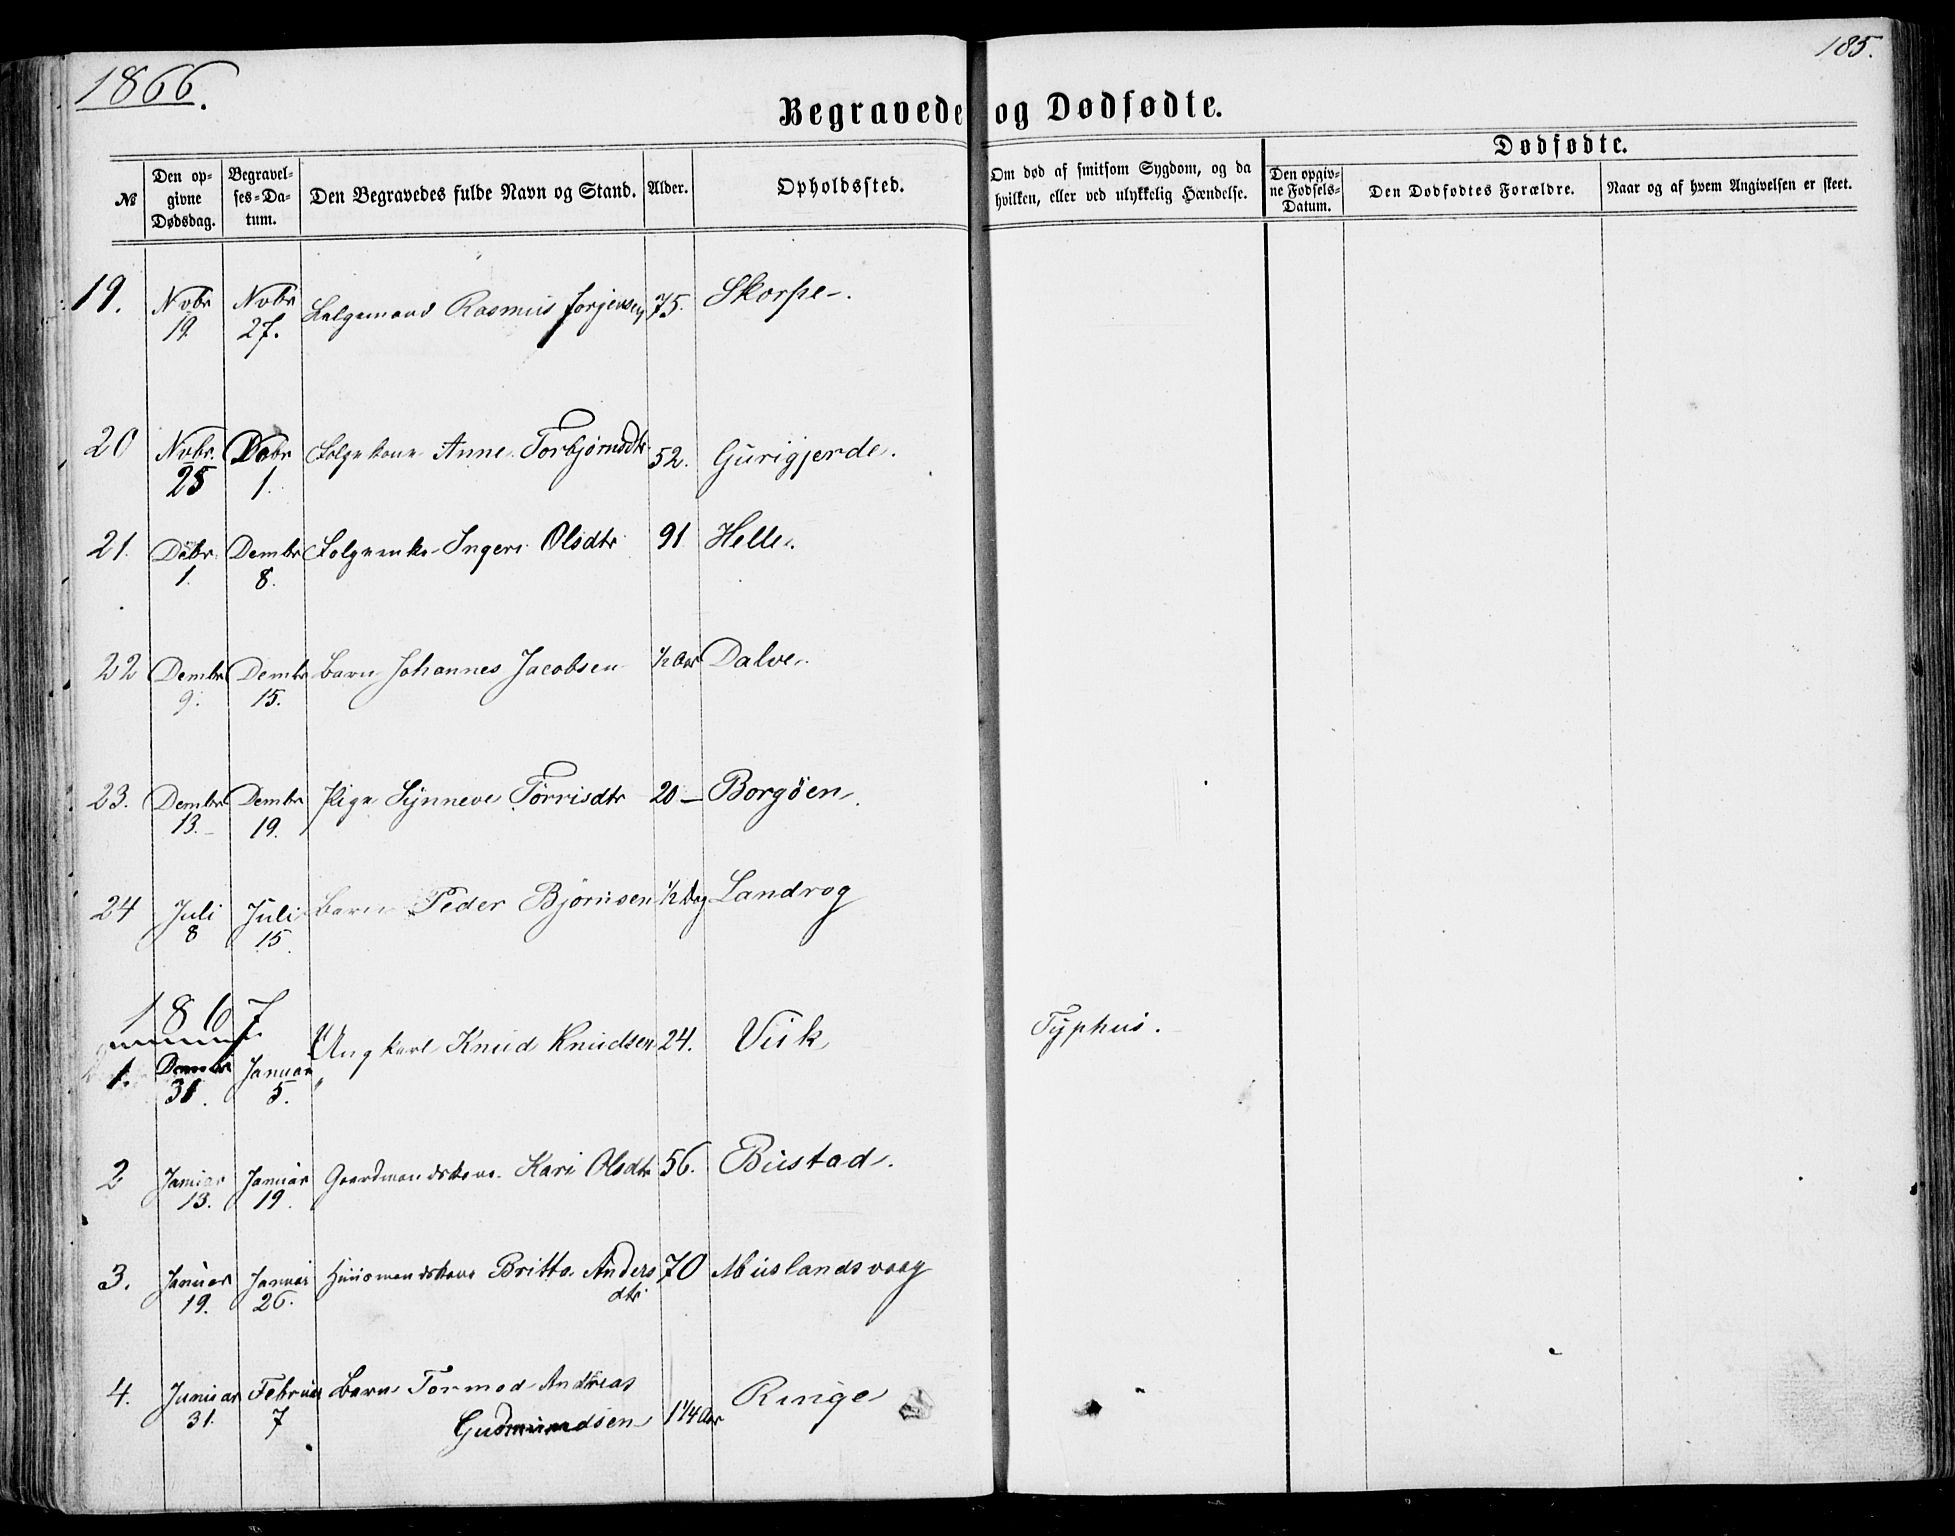 1866.
185.
Begravede og Dødfødte.
№
Den op-
givne
Dødsdag.
Begravel-
ses-Da-
tum.
Den Begravedes fulde Navn og Stand.
Alder.
Opholdssted.
Om død af smitsom Sygdom, og da
hvilken, eller ved ulykkelig Hændelse.
Dødfødte.
Den opgiv-
ne Fødsels-
Datum.
Den Dødfødtes Forældre.
Naar og af hvem Angivelsen er skeet.
19. Novbr 19 Novbr 27. Folgemand Rasmus Jørgensen 75. Skorpe.
20 Novbr. 25 Decbr 1. Folgekone Anne Torbjørnsdtr 52. Gurigjerde.
21. Decbr. 1. Dembr 8. Folgeenke Inger Olsdtr 91 Helle.
22 Dembr 9. Dembr 15. Barn Johannes Jacobsen ½ Aar Dalve.
23. Dembr 13. Dembr 19. Pige Synneve Torrisdtr 20 — Borgøen.
24 Juli 8 Juli 15. Barn Peder Bjørnsen ½ Dag Landrog
1867.
1. Dembr 31. Januar 5. Ungkarl Knud Knudsen 24. Vik Typhus.
2 Januar 13. Januar 19. Gaardmandskone Kari Olsdtr 56. Bustad.
3. Januar 19. Januar 26. Huusmandskone Britta Anders 70 Muslandsvaag
dtr
4. Januar 31. Februar 7 Barn Tormod Andreas
Gudmundsen 1¼ Aar Ringe